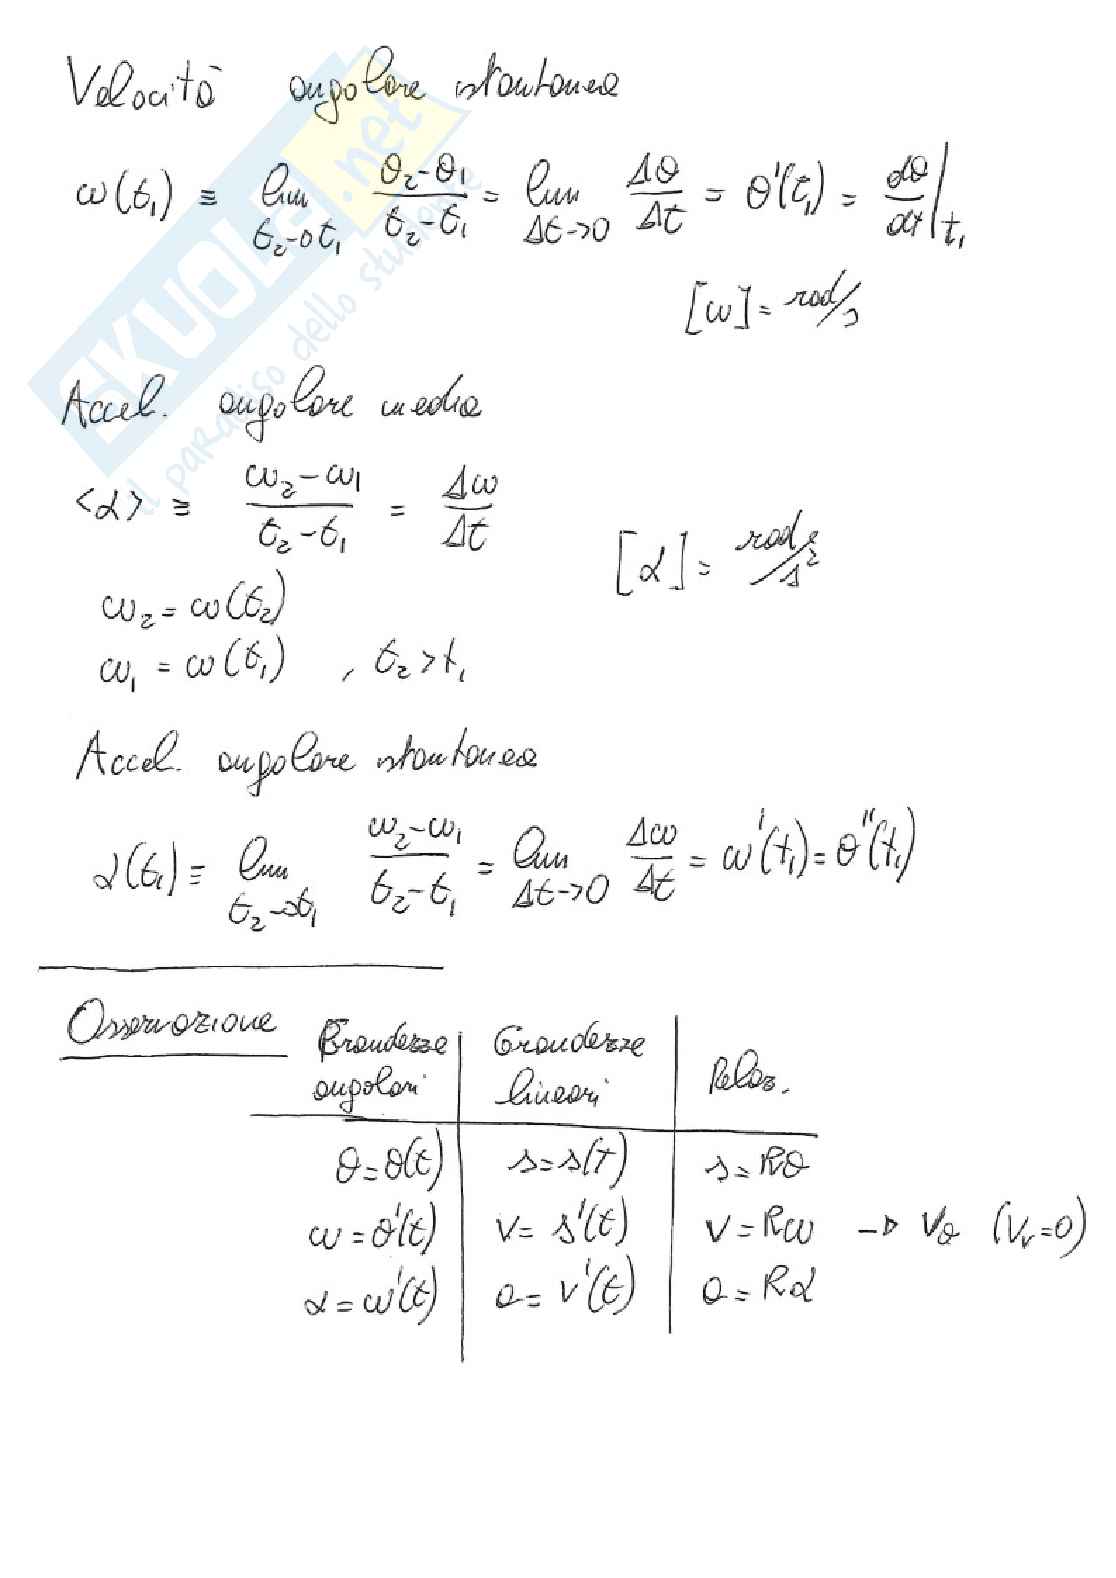 Velocità angolare istantanea
ω(t₁) ≡ lim t₂→t₁ (θ₂-θ₁)/(t₂-t₁) = lim Δt→0 Δθ/Δt = θ'(t₁) = dθ/dt|t₁
[ω] = rad/s
Accel. angolare media
<α> ≡ (ω₂-ω₁)/(t₂-t₁) = Δω/Δt
[α] = rad/s²
ω₂ = ω(t₂)
ω₁ = ω(t₁) , t₂ > t₁
Accel. angolare istantanea
α(t₁) ≡ lim t₂→t₁ (ω₂-ω₁)/(t₂-t₁) = lim Δt→0 Δω/Δt = ω'(t₁) = θ''(t₁)
Osservazione
Grandezze angolari | Grandezze lineari | Relaz.
θ = θ(t) | s = s(t) | s = Rθ
ω = θ'(t) | v = s'(t) | v = Rω → vθ (vr = 0)
α = ω'(t) | a = v'(t) | a = Rα
SKUOLA.net
il paradiso dello studente